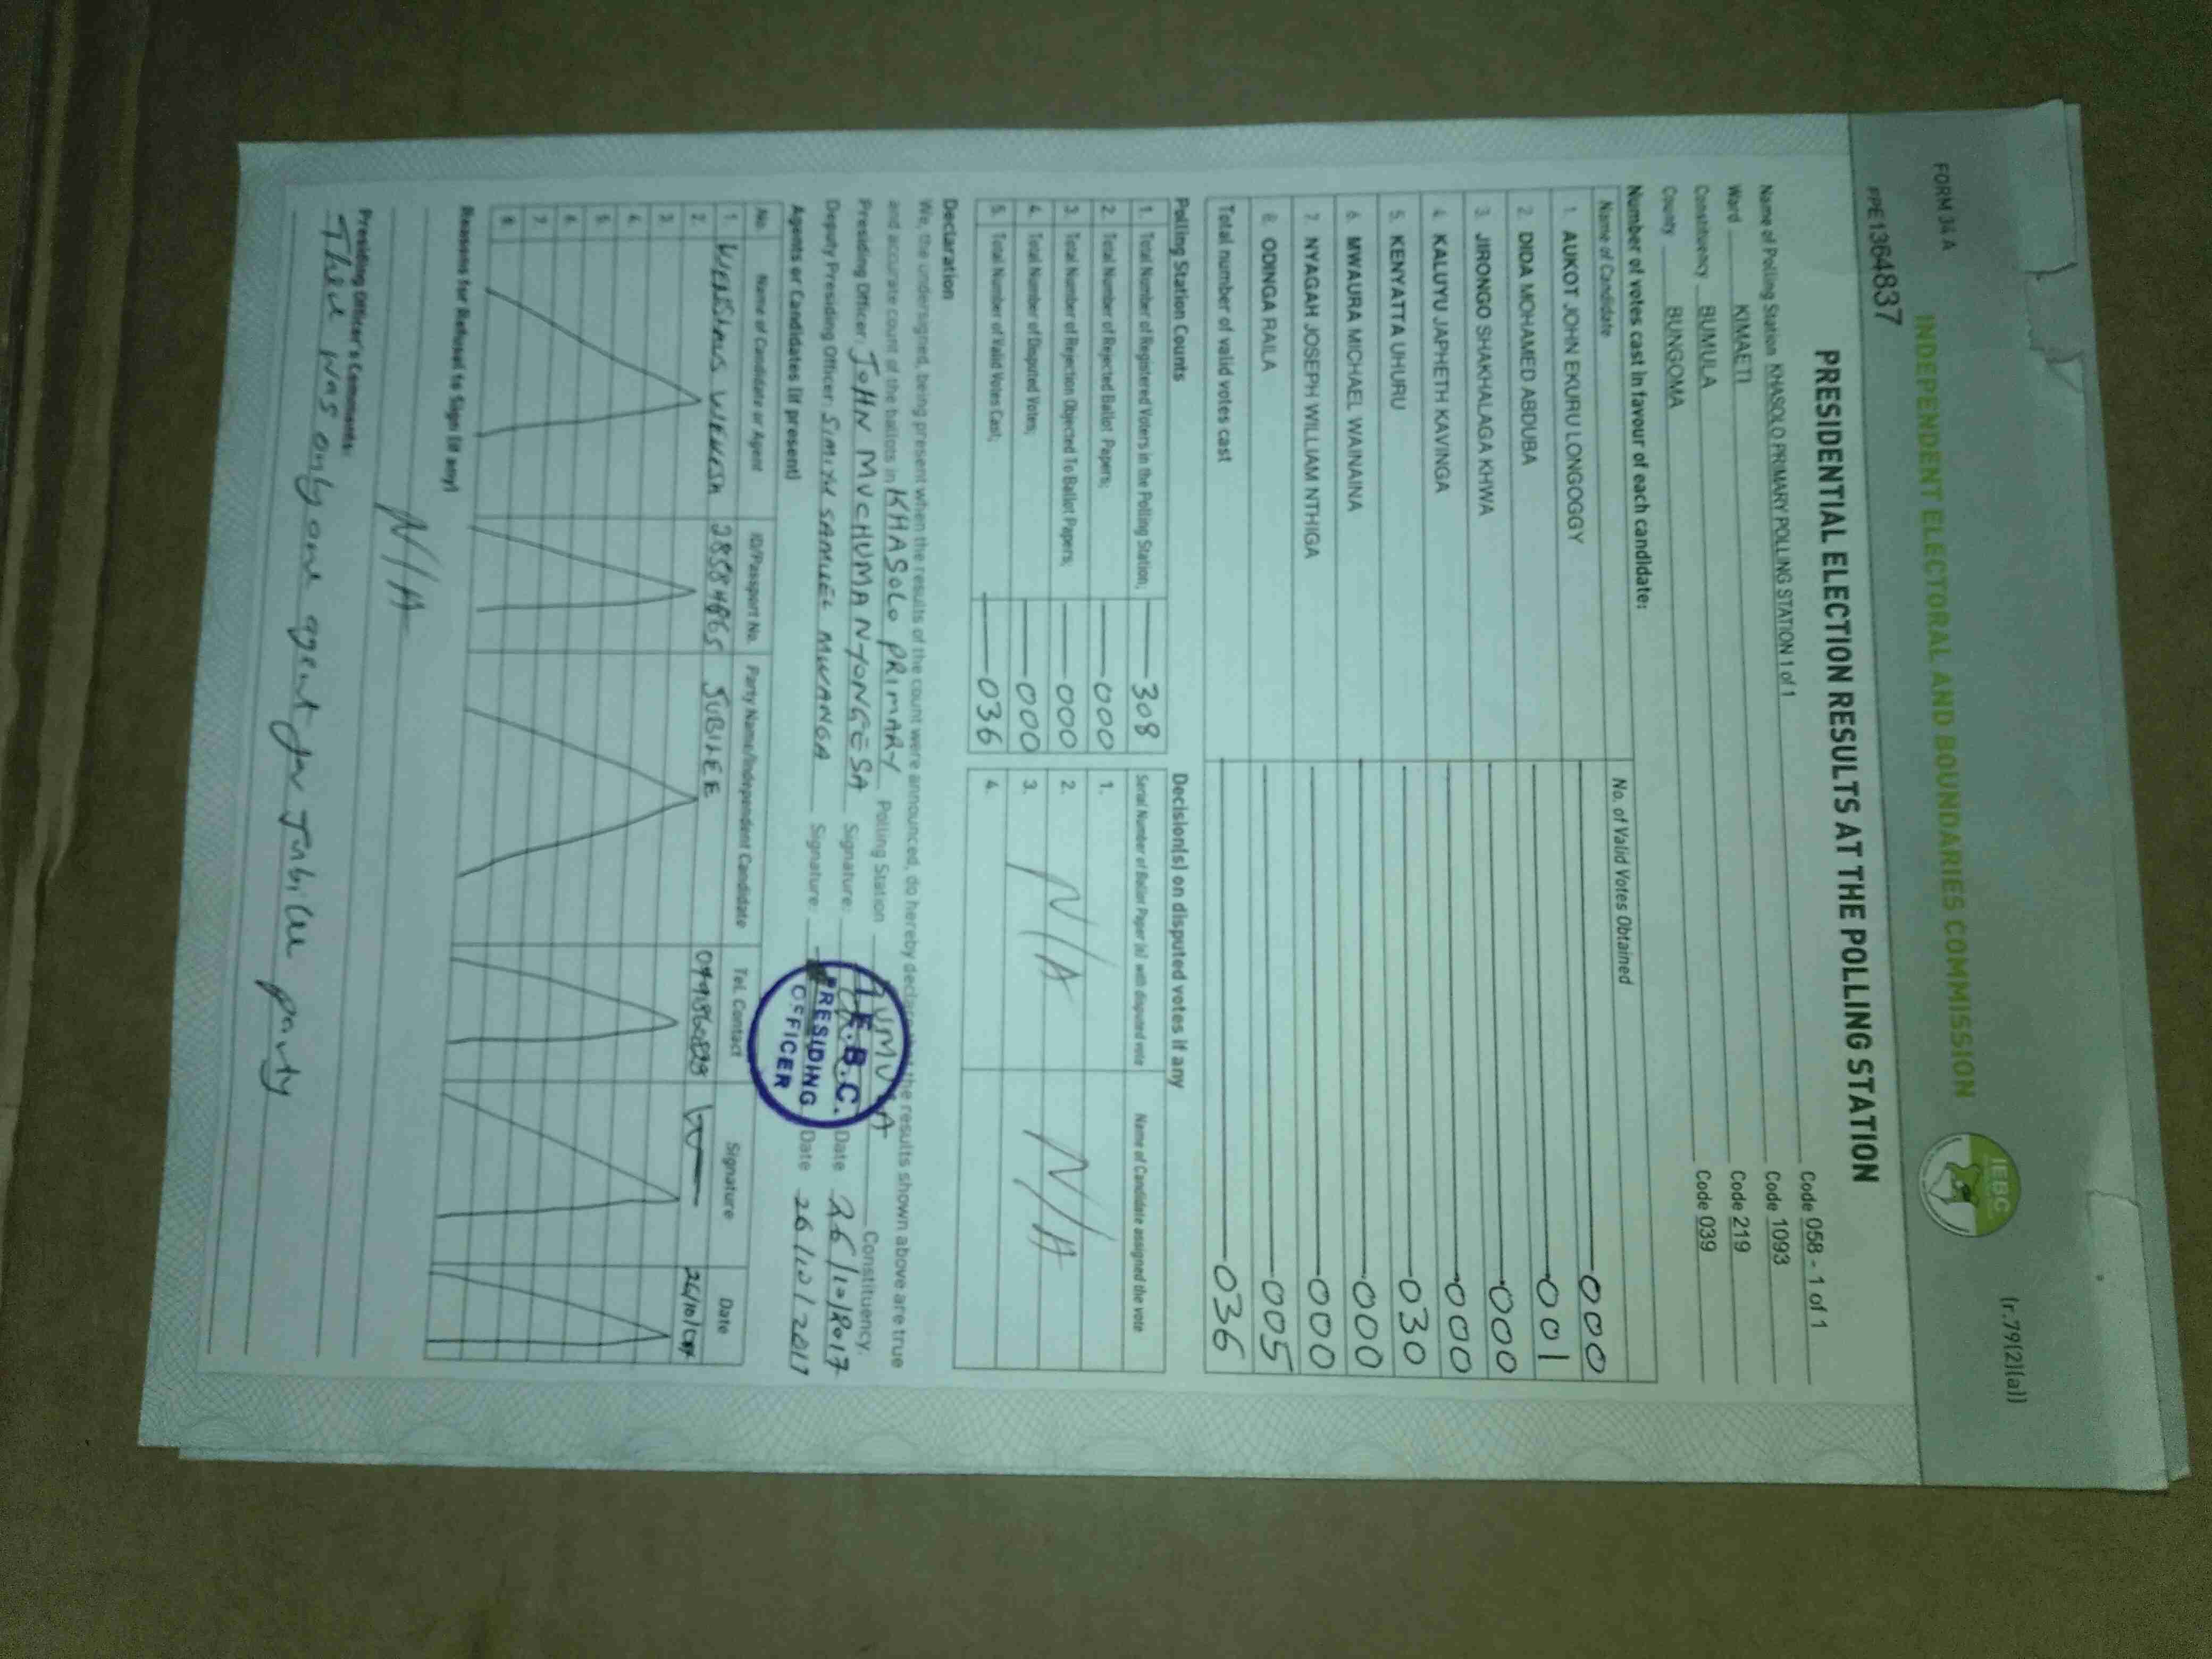 FORM 34 A
(r.79(2)(a))
INDEPENDENT ELECTORAL AND BOUNDARIES COMMISSION
IEBC
PPE1364837
PRESIDENTIAL ELECTION RESULTS AT THE POLLING STATION
Name of Polling Station KHASOLO PRIMARY POLLING STATION 1 of 1 Code 058 - 1 of 1
Ward KIMAETI Code 1093
Constituency BUMULA Code 219
County BUNGOMA Code 039
Number of votes cast in favour of each candidate:
Name of Candidate No. of Valid Votes Obtained
1. AUKOT JOHN EKURU LONGOGGY 000
2. DIDA MOHAMED ABDUBA 001
3. JIRONGO SHAKHALAGA KHWA 000
4. KALUYU JAPHETH KAVINGA 000
5. KENYATTA UHURU 030
6. MWAURA MICHAEL WAINAINA 000
7. NYAGAH JOSEPH WILLIAM NTHIGA 000
8. ODINGA RAILA 005
Total number of valid votes cast 036
Polling Station Counts Decision(s) on disputed votes if any
1. Total Number of Registered Voters in the Polling Station; 308 Serial Number of Ballot Paper (s) with disputed vote Name of Candidate assigned the vote
2. Total Number of Rejected Ballot Papers; 000 1.
3. Total Number of Rejection Objected To Ballot Papers; 000 2. N/A N/A
4. Total Number of Disputed Votes; 000 3.
5. Total Number of Valid Votes Cast; 036 4.
Declaration
We, the undersigned, being present when the results of the count were announced, do hereby declare that the results shown above are true
and accurate count of the ballots in KHASOLO PRIMARY Polling Station BUMULA Constituency.
Presiding Officer: JOHN MUCHUMA NYONGESA Signature: Date 26/10/2017
Deputy Presiding Officer: SAMUEL MWANGA Signature: Date 26/10/2017
I.E.B.C.
PRESIDING
OFFICER
Agents or Candidates (if present)
No. Name of Candidate or Agent ID/Passport No. Party Name/Independent Candidate Tel. Contact Signature Date
1. JUBILEE
2.
3.
4.
5.
6.
7.
8.
Reasons for Refusal to Sign (if any)
N/A
Presiding Officer's Comments:
There was only one agent for Jubilee party